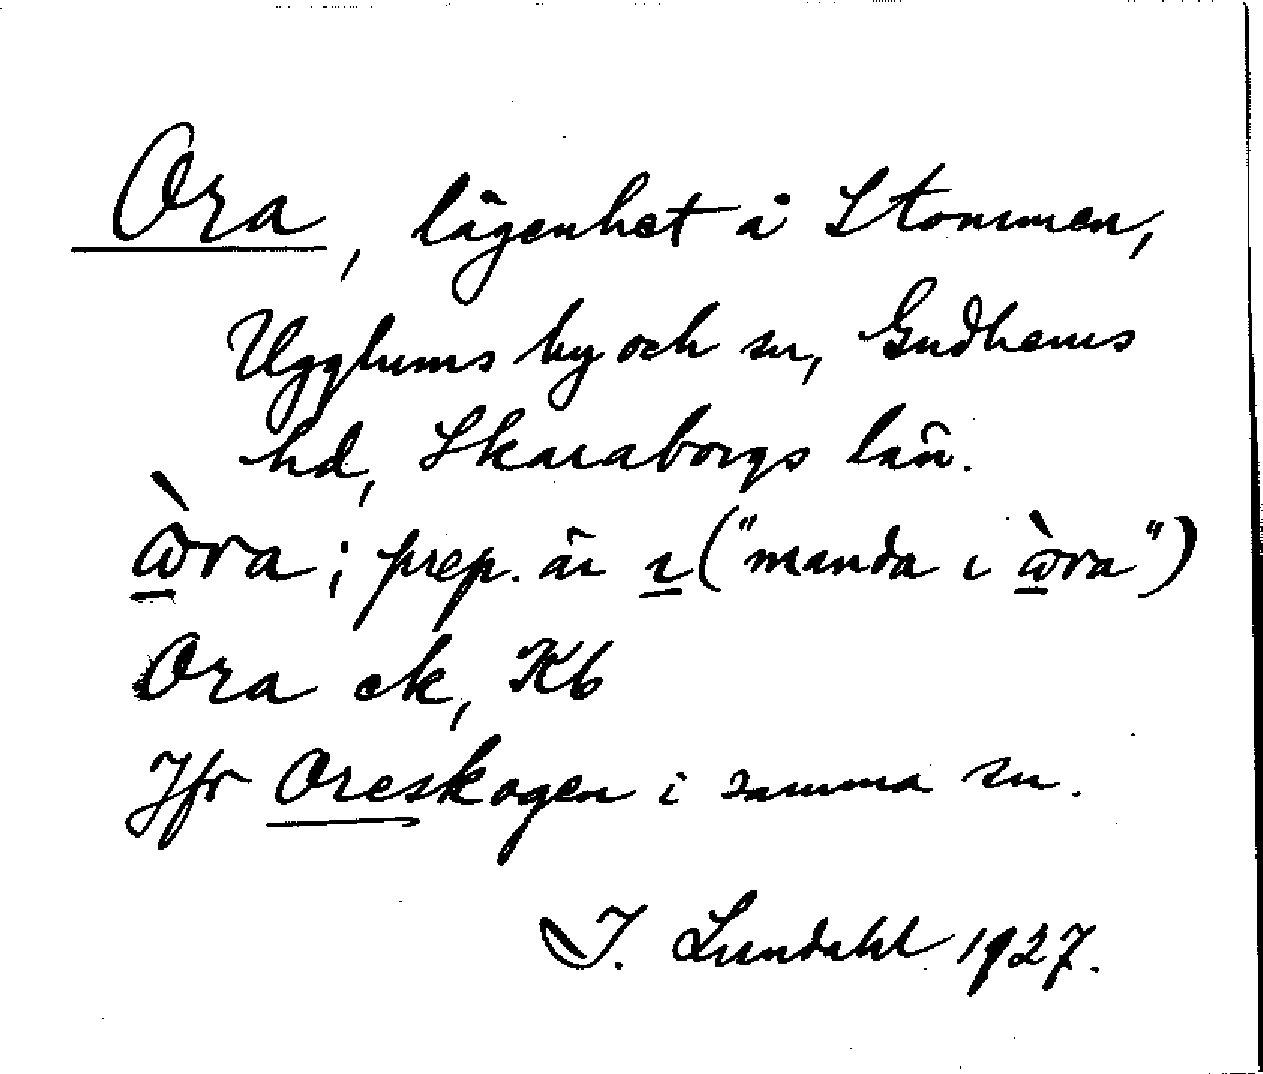 Ora, lägenhet å Stommen,
Ugglums by och sn, Gudhems
hd, Skaraborgs län.
ꞷ̀ra; prep. är ı ("manda ı ꞷ̀ra")
Ora ek, Kb
Jfr Oreskogen i samma sn.
I. Lundahl 1927.